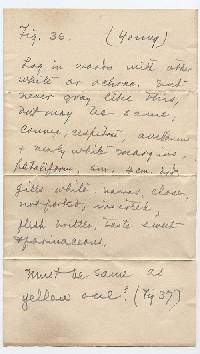 Fig. 36. (Young)
Log in woods with other
white or ochrac. but
never gray like this,
but may be same,
Connic, cespitose,
& nearly white margins,
4 cm.
gills white, narrow, close,
not forked,
flesh brittle, taste sweet
& farinaceous.
Must be same as
yellow one? (Fig 37)